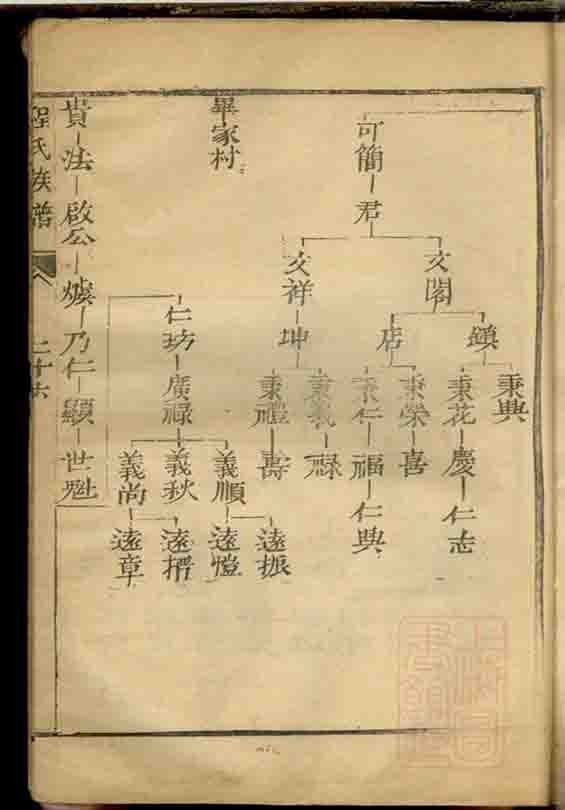 可簡 君
文閣
文祥
鎮
店
坤
秉典
秉花 慶 仁志
秉榮 喜
秉仁 福 仁典
秉義 祿
秉禮 壽
畢家村
仁坊 廣祿
義順
義秋
義尚
遠振
遠愷
遠揩
遠章
貴 法 啟公 乃仁 顯 世魁
程氏族譜 二十六